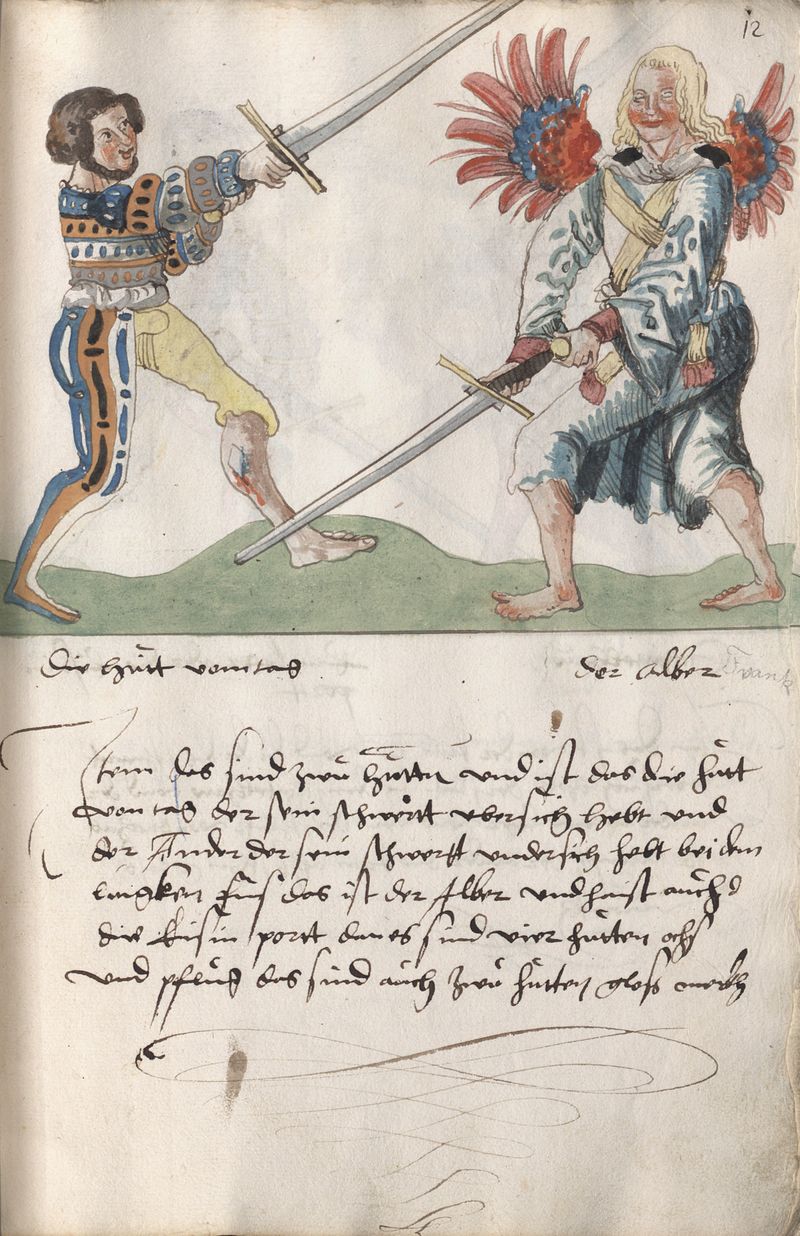 12
die hůtt vom tag
der alber Frank
Item das sind zwů hůtten und ist das die hůtt
von tag der sein schwertt ubersich hebt und
der Ander der sein schwertt undersich helt bei dem
lingken fus das ist der Alber und haist auch
die Eisin portt dan es sind vier hůtten ochs
und pflůg das sind auch zwů hůtten glos merkh